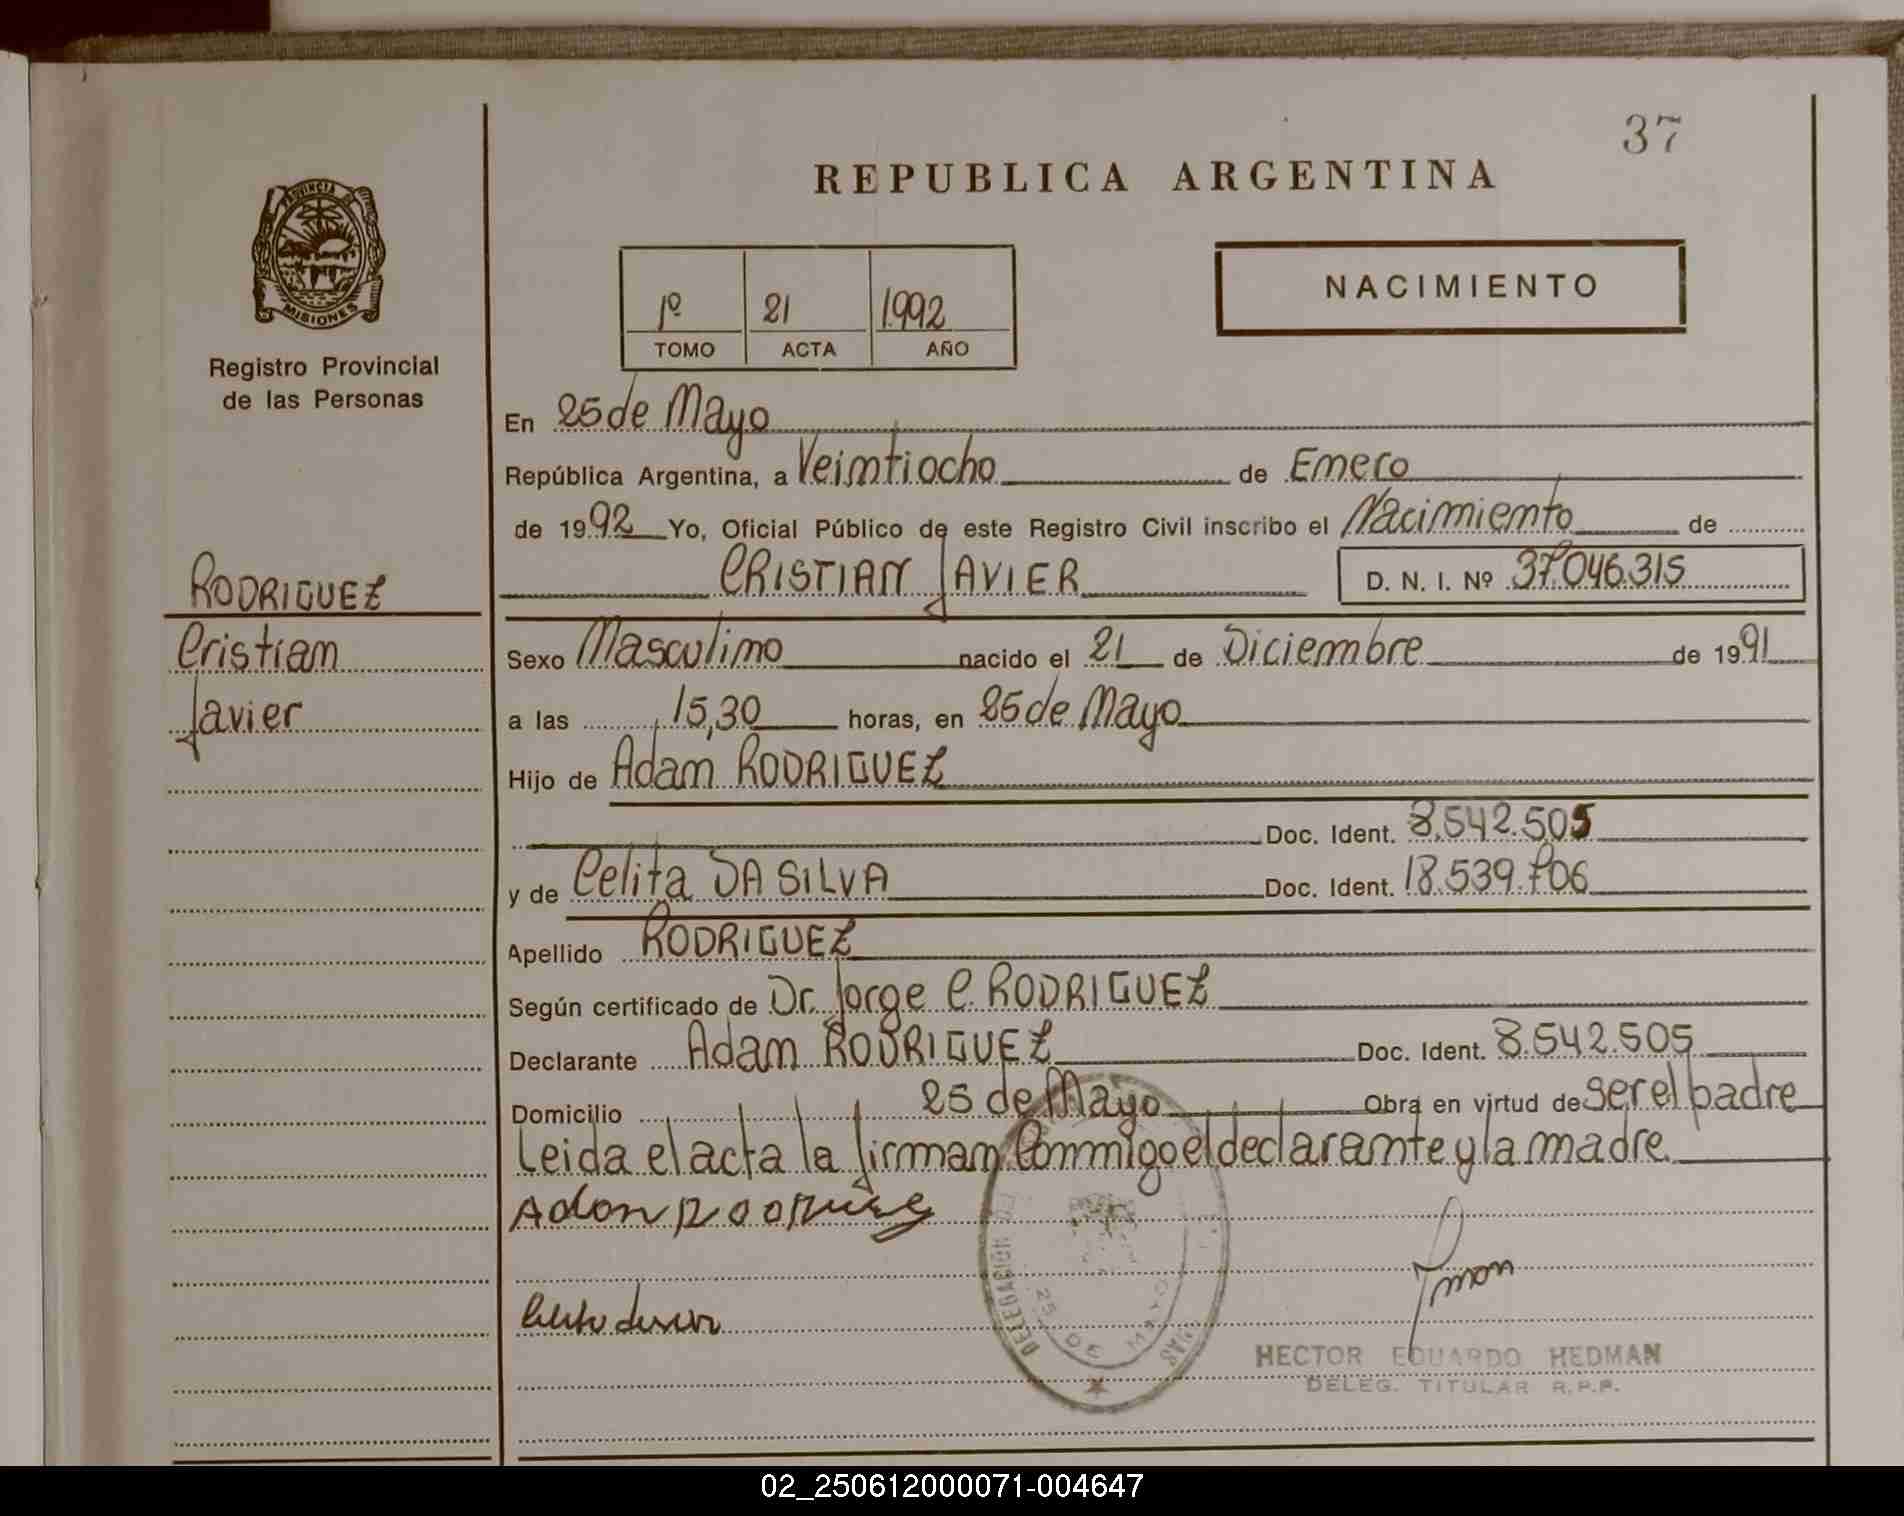 37
REPUBLICA ARGENTINA
PROVINCIA DE
MISIONES
Registro Provincial
de las Personas
1º 21 1992
TOMO ACTA AÑO
NACIMIENTO
En 25 de Mayo
República Argentina, a Veintiocho de Enero
de 1992 Yo, Oficial Público de este Registro Civil inscribo el Nacimiento de
CRISTIAN JAVIER D. N. I. Nº 37.046.315
RODRIGUEZ
Cristian
Javier
Sexo Masculino nacido el 21 de Diciembre de 1991
a las 15,30 horas, en 25 de Mayo
Hijo de Adam RODRIGUEZ
Doc. Ident. 8.542.505
y de Celita DA SILVA Doc. Ident. 18.539.706
Apellido RODRIGUEZ
Según certificado de Dr. Jorge C. RODRIGUEZ
Declarante Adam RODRIGUEZ Doc. Ident. 8.542.505
Domicilio 25 de Mayo Obra en virtud de ser el padre
Leida el acta la firman Conmigo el declarante y la madre
Adan Rodriguez
DELEGACION DE
25 DE MAYO
HECTOR EDUARDO HEDMAN
DELEG. TITULAR R.P.P.
02_250612000071-004647